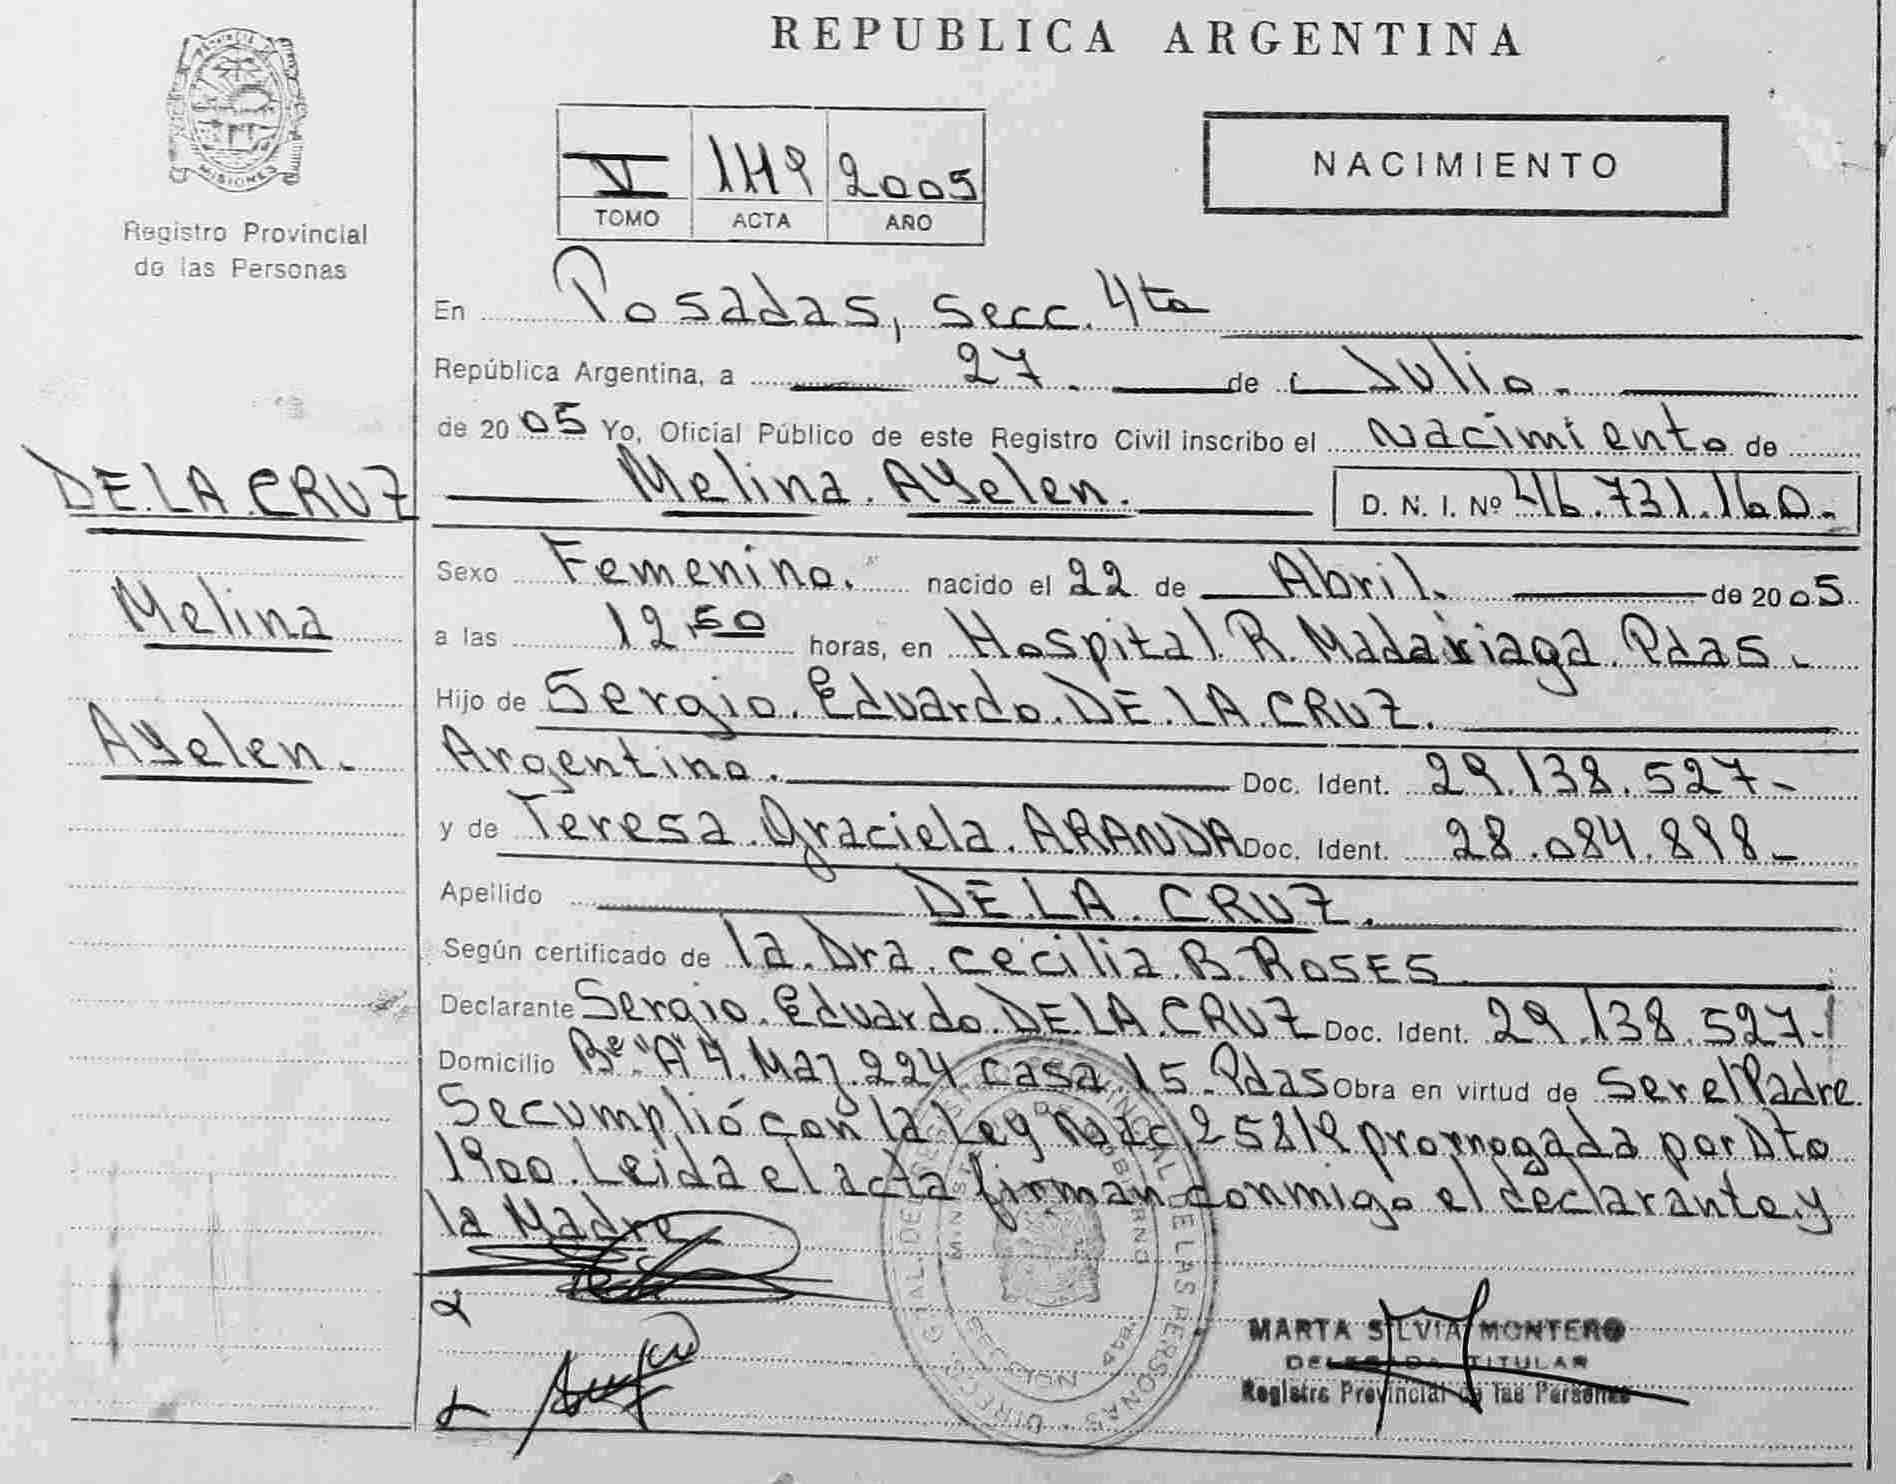 REPUBLICA ARGENTINA
MISIONES
Registro Provincial
de las Personas
V 1119 2005
TOMO ACTA AÑO
NACIMIENTO
En Posadas, Secc. 4ta
República Argentina, a 27. de Julio.
de 2005 Yo, Oficial Público de este Registro Civil inscribo el Nacimiento de
Melina. Ayelen. D. N. I. Nº 46.731.160.-
DE.LA.CRUZ
Melina
Ayelen.
Sexo Femenino. nacido el 22 de Abril. de 2005
a las 12,50 horas, en Hospital R. Madariaga. Pdas.
Hijo de Sergio. Eduardo. DE.LA.CRUZ.
Argentino. Doc. Ident. 29.138.527-
y de Teresa. Graciela. ARANDA Doc. Ident. 28.084.898-
Apellido DE.LA.CRUZ.
Según certificado de la.Dra.Cecilia.B.ROSES
Declarante Sergio. Eduardo. DE.LA.CRUZ Doc. Ident. 29.138.527-
Domicilio Bº "A"4. Maz.224 casa.15.Pdas Obra en virtud de Ser el Padre
Se cumplió con la Ley Nac 25819 prorrogada por Dto
1900. Leida el acta firman conmigo el declarante y
la Madre
MARTA SILVIA MONTERO
DELEGADA TITULAR
Registro Provincial de las Personas